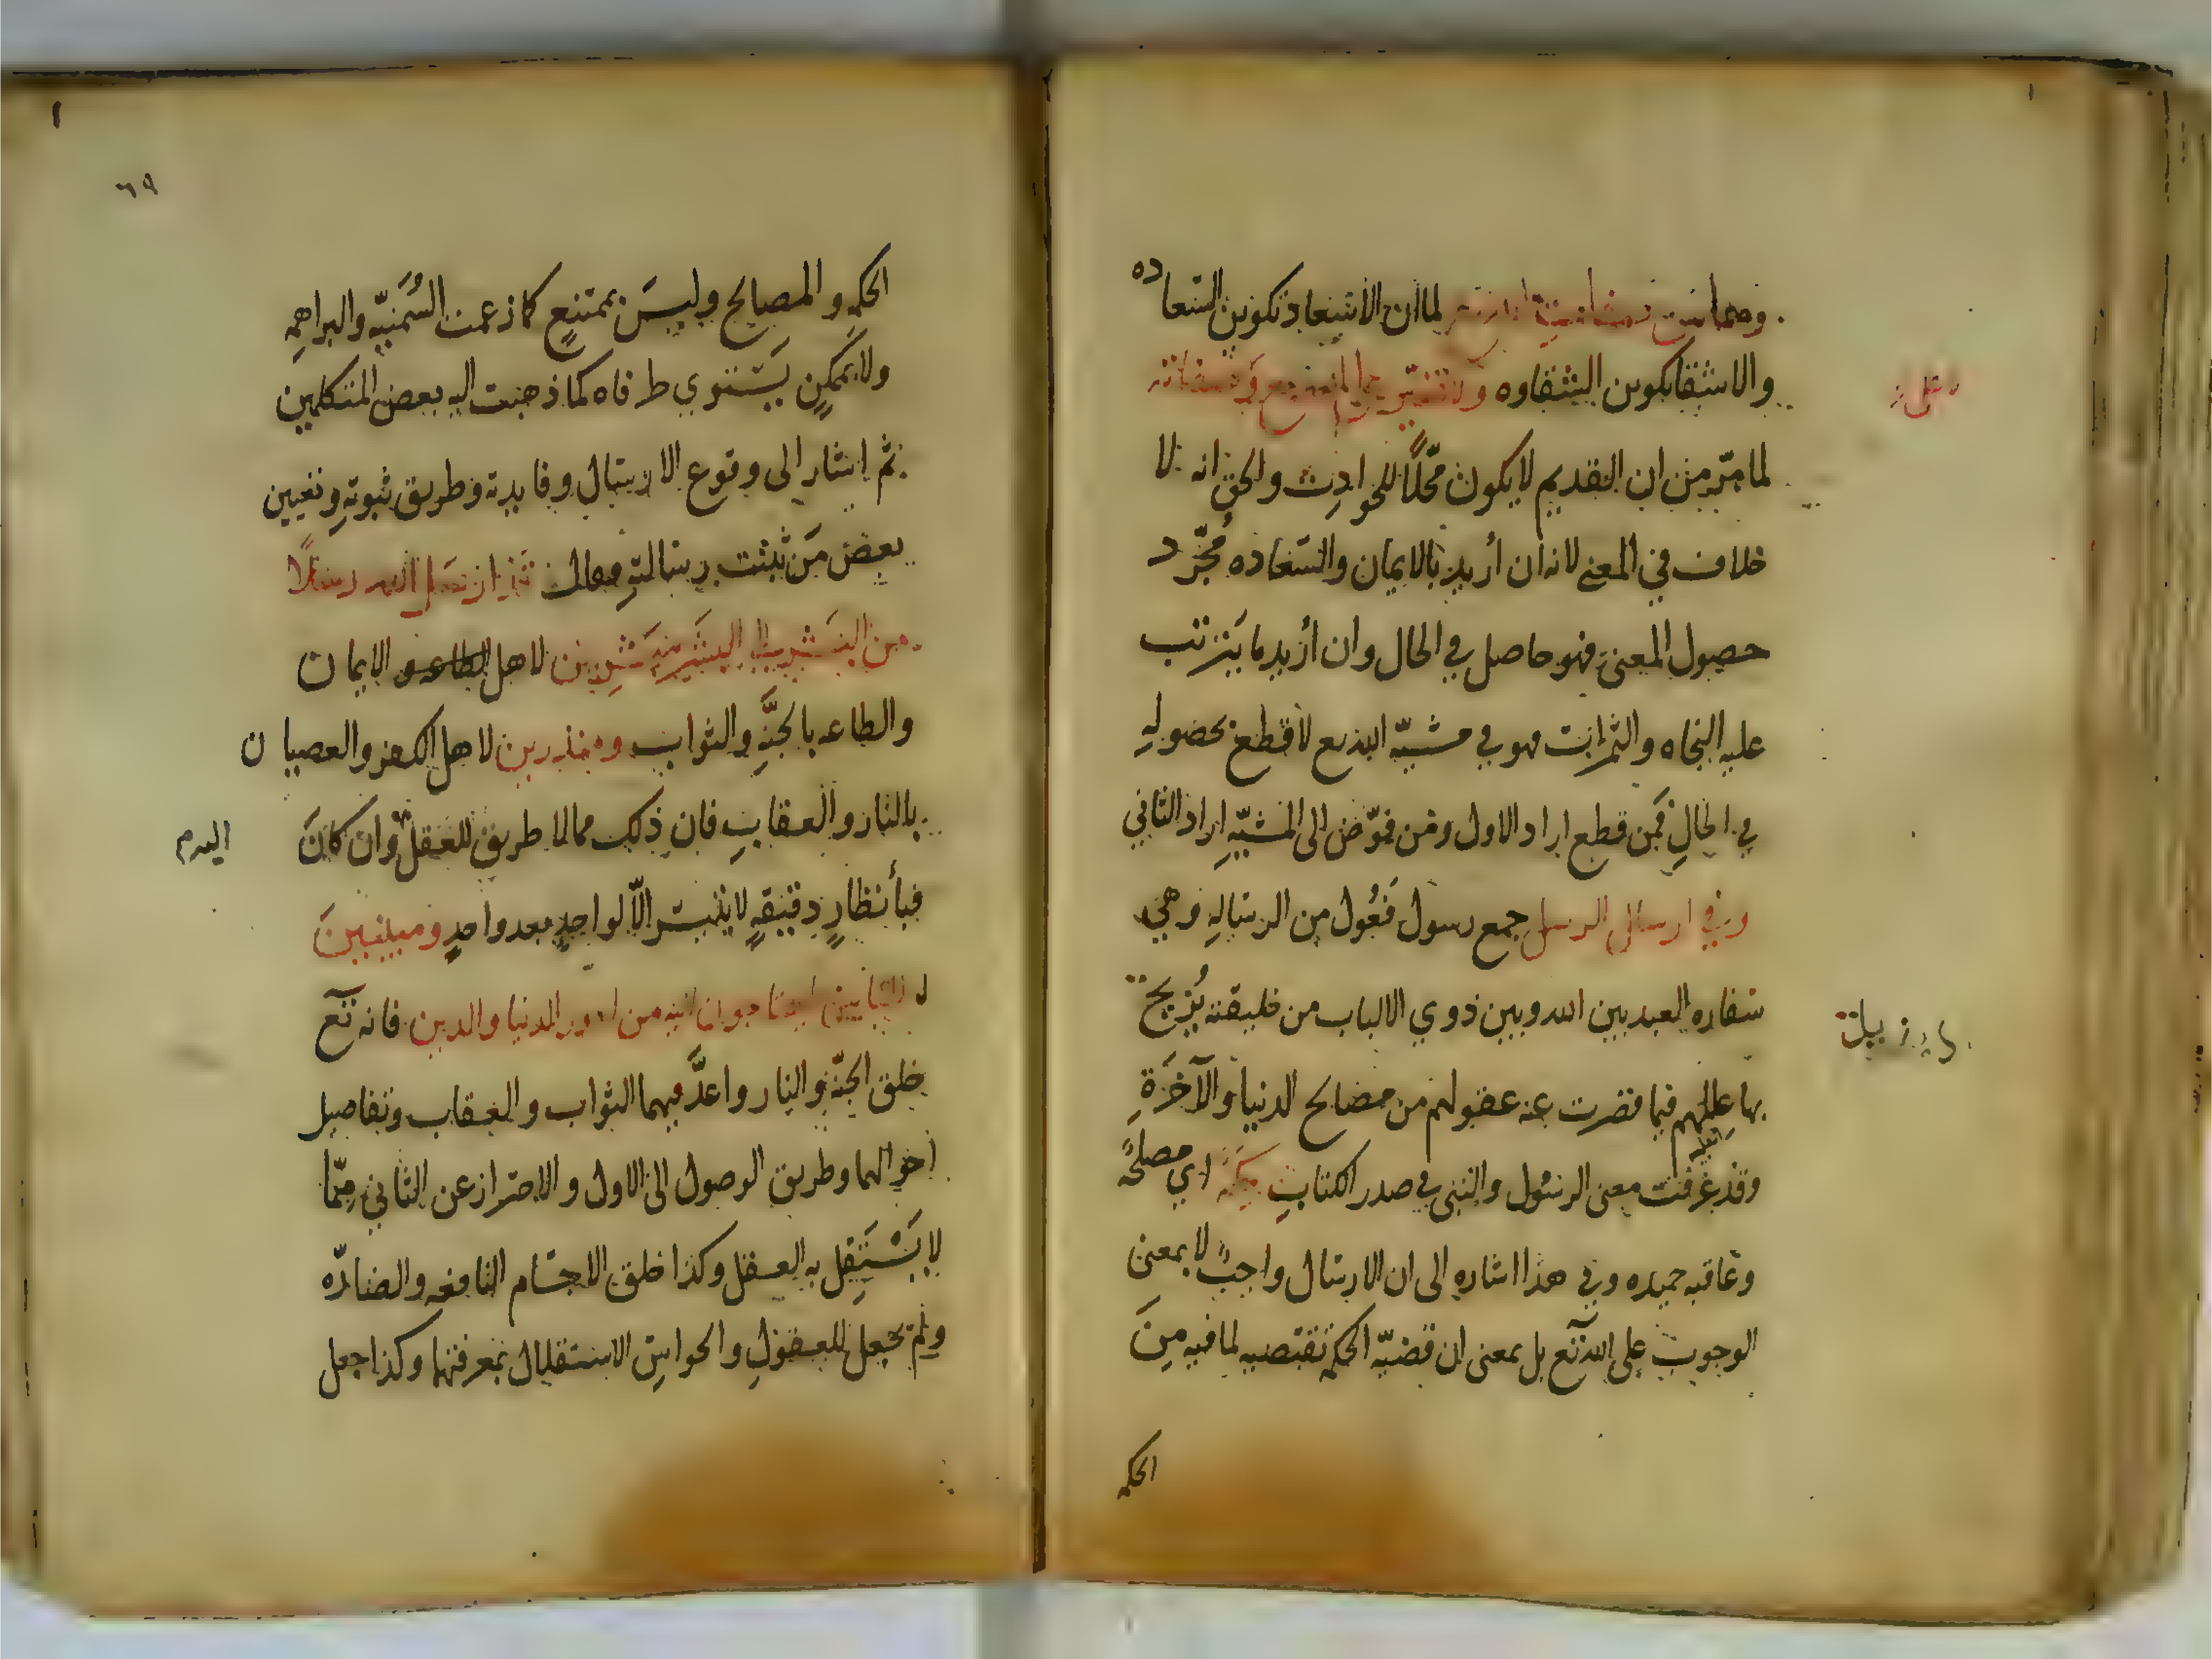 وهما من صفات الله تعالى لما ان الاسعاد تكوين السعاده
والاشقا تكوين الشقاوه ولا تغير على الله ولا على صفاته
لما مر من ان القديم لا يكون محلًا للحوادث والحق انه لا
خلاف في المعنى لانه ان أريد بالايمان والسعاده مُجرّد
حصول المعنى فهو حاصل في الحال وان أريد ما يترتب
عليه النجاه والثمرات فهو في مشيّه الله تع لا قطع بحصوله
في الحالِ فمن قطع اراد الاول ومن فوّض الى المشيّه اراد الثاني
وفي ارسال الرسل جمع رسول فَعُول من الرساله وهي
سفاره العبد بين الله وبين ذوي الالباب من خليقته يُزيح
بها عللهم فيما قصرت عنه عقولهم من مصالح الدنيا والآخرَةِ
وقد عرفت معنى الرسُول والنبي في صدر الكتابِ حكمَة اي مصلحةً
وعاقبه حميده وفي هذا اشاره الى ان الارسال واجبٌ لا بمعنى
الوجوب على الله تع بل بمعنى ان قضيّه الحكمه تقتضيه لما فيه مِنَ
الحكمه
٦٩
الحكمِه والمصالح وليسَ بممتنعٍ كما زعمت السُمَنيّه والبراهمِه
ولا بممكنٍ يَسْتوي طرفاه كما ذهبت اليه بعض المتكلمين
ثم اشار الى وقوع الارسال وفايدته وطريق ثبوتهِ وتعيين
بعض مَن ثبتت رسالتهِ فقال وقد ارسل الله رسلًا
من البَشر الى البشَر مبَشرِين لاهل الطاعه و الايمان
والطاعه بالجنَّه والثواب ومنذرين لاهل الكفر والعصيان
بالنار والعقابِ فان ذلك مما لا طريق للعقل وان كانَ
اليه
فبأنظارٍ دقيقهٍ لا يتيسر الّا لواحدٍ بعد واحدٍ ومبينينَ
للناس ما يحتاجون اليه من امور الدنيا والدين فانه تع
خلق الجنّه والنار واعدَّ فيهما الثواب والعقاب وتفاصيل
احوالهما وطريق الوصول الى الاول والاحتراز عن الثاني مِمّا
لا يَسْتَقِل به العقل وكذا خلق الاجسَام النافعه والضارّه
ولم يجعل للعقولِ والحواسِ الاستقلال بمعرفتها وكذا جعل